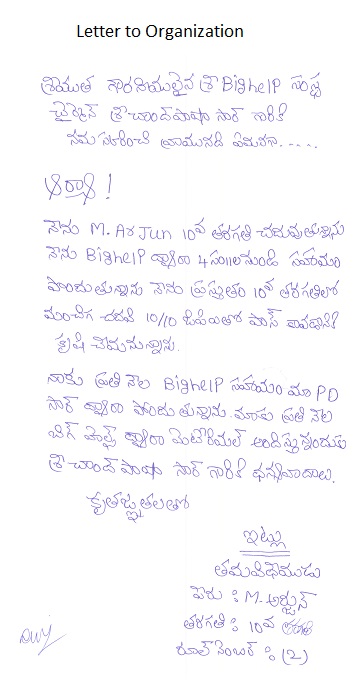 Letter to Organization
శ్రీయుత గౌరవనీయులైన శ్రీ BigheIP సంస్థ
చైర్మెన్ శ్రీ చాంద్ పాషా సార్ గారికి
నమస్కరించి వ్రాయునది ఏమనగా.....
ఆర్యా!
నేను M. ArJun 10వ తరగతి చదువుతున్నాను
నేను BigheIP ద్వారా 4 సం॥ల నుండి సహాయం
పొందుతున్నాను నేను ప్రస్తుతం 10వ తరగతిలో
మంచిగ చదివి 10/10 జిపిఎతో పాస్ కావడానికి
కృషి చేస్తున్నాను.
నాకు ప్రతి నెల BigheIP సహాయం మా PD
సార్ ద్వారా పొందుతున్నాను. మాకు ప్రతి నెల
బిగ్ హెల్ప్ ద్వారా మెటీరియల్ అందిస్తున్నందుకు
శ్రీ చాంద్ పాషా సార్ గారికి ధన్యవాదాలు.
కృతజ్ఞతలతో
ఇట్లు
తమ విధేయుడు
పేరు : M. అర్జున్
తరగతి : 10వ తరగతి
రూల్ నెంబర్ : (2)